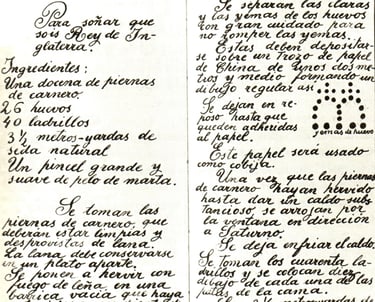 Para soñar que
sois Rey de In-
glaterra.
Ingredientes:
Una docena de piernas
de carnero.
26 huevos
40 ladrillos
3½ metros-yardas de
seda natural
Un pincel grande y
suave de pelo de marta.
Se toman las
piernas de carnero, que
deberán estar limpias y
desprovistas de lana.
La lana debe conservarse
en un plato aparte.
Se ponen a hervir con
fuego de leña, en una
vacía que haya
Se separan las claras
y las yemas de los huevos
con gran cuidado para
no romper las yemas.
Estas deben depositar-
se sobre un trozo de papel
de China de unos dos me-
tros y medio formando un
dibujo regular así
Se dejan en re-
poso hasta que
queden adheridas
al papel.
yemas de huevo
Este papel será usado
como colcha.
Una vez que las piernas
de carnero hayan hervido
hasta dar un caldo subs
tancioso, se arrojan por
la ventana en dirección
a Saturno.
Se deja enfriar el caldo.
Se toman los cuarenta la-
drillos y se colocan diez
debajo de cada una de las
patas de la cama.